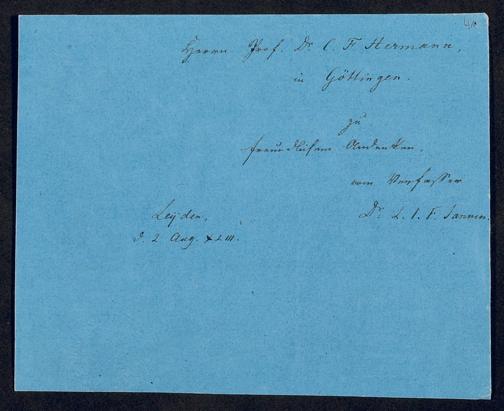 Herrn Prof. Dr. C. F. Hermann,
in Göttingen.
zu
freundlichem Andenken,
vom Verfasser
Dr. L. J. F. Janssen.
Leyden,
d. 2 Aug.